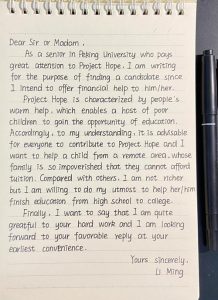 Dear Sir or Madam,
As a senior in Peking University who pays
great attention to Project Hope. I am writing
for the purpose of finding a candidate since
I intend to offer financial help to him/her.
Project Hope is characterized by people's
warm help, which enables a host of poor
children to gain the opportunity of education.
Accordingly, to my understanding, it is advisable
for everyone to contribute to Project Hope and I
want to help a child from a remote area, whose
family is so impoverished that they cannot afford
tuition. Compared with others, I am not richer
but I am willing to do my utmost to help her/him
finish education from high school to college.
Finally, I want to say that I am quite
greatful to your hard work and I am looking
forward to your favorable reply at your
earliest convenience.
Yours sincerely,
Li Ming